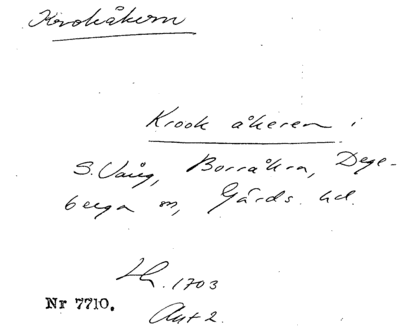 Krokåkern
Krook åkeren i
S. Vång, Borråkra, Dege-
berga sn, Gärds hd.
Lh. 1703
Nr 7710.
Akt 2.